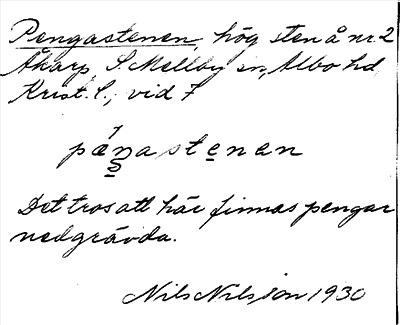 Pengastenen, hög sten å nr. 2
Åkarp, S. Mellby sn, Albo hd,
Krist. l., vid 7
pǽŋastenan
Det tros att här finnas pengar
nedgrävda.
Nils Nilsson 1930